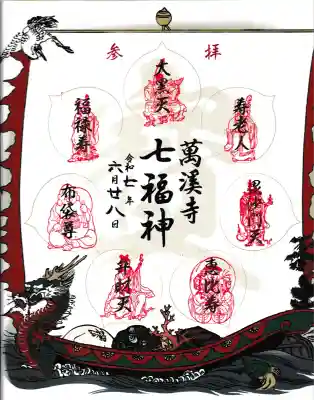 参拝
大黒天
寿老人
福禄寿
毘沙門天
布袋尊
恵比寿
弁財天
萬溪寺
七福神
令和七年
六月廿八日